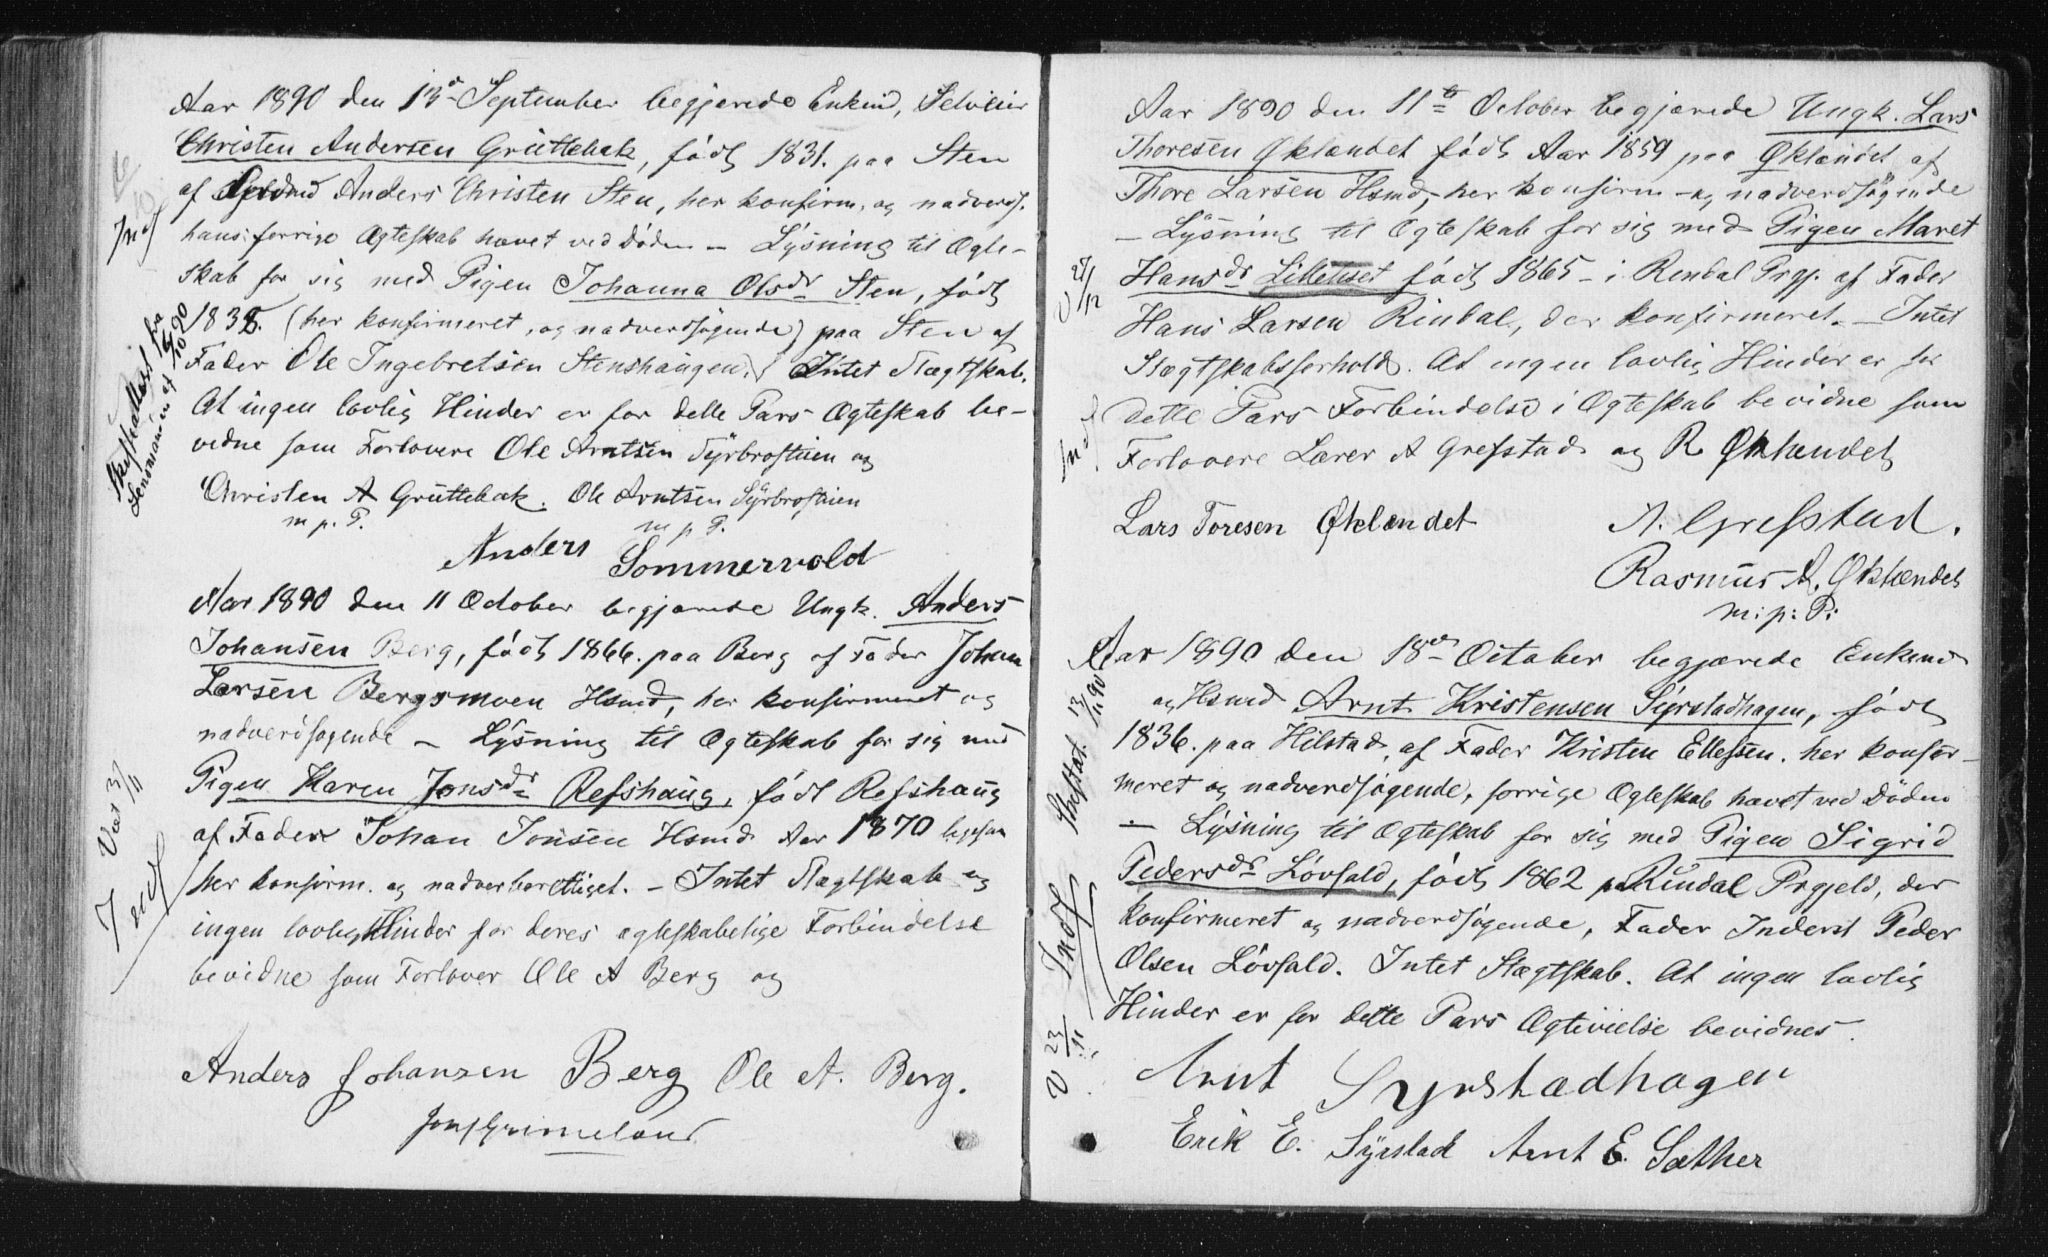 Aar 1890 den 13de September begjærede Enkmd, Selveier
Christen Andersen Grüttebak, født 1831. paa Sten
af Anders Christen Sten, her konfirm. og nadverds.
hans forrige Ægteskab hævet ved Døden – Lysning til Ægte-
skab for sig med Pigen Johanna Olsdr Sten, født
(her konfirmeret, og nadverdsøgende) paa Sten af
Fader Ole Ingebretsen Stenshaugen. Intet Slægtskab.
At ingen lovlig Hinder er for dette Pars Ægteskab be-
vidne som Forlovere Ole Arntsen Syrbrøstuen og
Christen A Grüttebak. Ole Arntsen Syrbrøstuen
m p. P. m p P.
Anders Sommervold
Aar 1890 den 11 October begjærede Ungk. Anders
Johansen Berg, født 1866. paa Berg af Fader Johan
Larsen Bergsmoen Hsmd, her konfirmeret og
nadverdsøgende – Lysning til Ægteskab for sig med
Pigen Karen Jonsdr Refshaug, født Refshaug
af Fader Johan Jonsen Hsmd Aar 1870
her konfirm. og nadverberettiget. – Intet Slægtskab og
ingen lovlig Hinder for deres ægteskabelige Forbindelse
bevidne som Forlover Ole A Berg og
Anders Johansen Berg Ole A. Berg.
Grimeland
Indf
Skifteattest fra
Lensmanden af
Viet 3/11
Indf
Aar 1890 den 11te October begjærede Ungk. Lars
Thoresen Øklandet født Aar 1859 paa Øklandet af
Thore Larsen Hsmd, her konfirm – og nadverdsøgende
– Lysning til Ægteskab for sig med Pigen Maret
Hansdr Lilletuset født 1865 – i Rendal Prgj. af Fader
Hans Larsen Rindal, der konfirmeret. – Intet
Slægtskabsforhold. At ingen lovlig Hinder er for
dette Pars Forbindelse i Ægteskab bevidne som
Forlovere Lærer A Grefstad og R Øklændet
Lars Toresen Øklændet A. Grefstad.
Rasmus A. Øklændet
m: p: P:
Aar 1890 den 18de October begjærede Enkemd
og Hsmd Arnt Kristensen Syrstadhagen, født
1836. paa Hilstad, af Fader Kristen Ellefsen. her konfir-
meret og nadverdsøgende, forrige Ægteskab hævet ved Døden
– Lysning til Ægteskab for sig med Pigen Sigrid
Pedersdr Løvfald, født 1862 paa Rindal Prgjeld, der
konfirmeret og nadverdsøgende, Fader Inderst Peder
Olsen Løvfald. Intet Slægtskab. At ingen lovlig
Hinder er for dette Pars Ægtevielse bevidnes.
Arnt Syrstadhagen
Erik E. Syrstad Arnt E. Sæther
V 27/12
Indf
Skiftat. 13/11 90
Indf
V 23/11